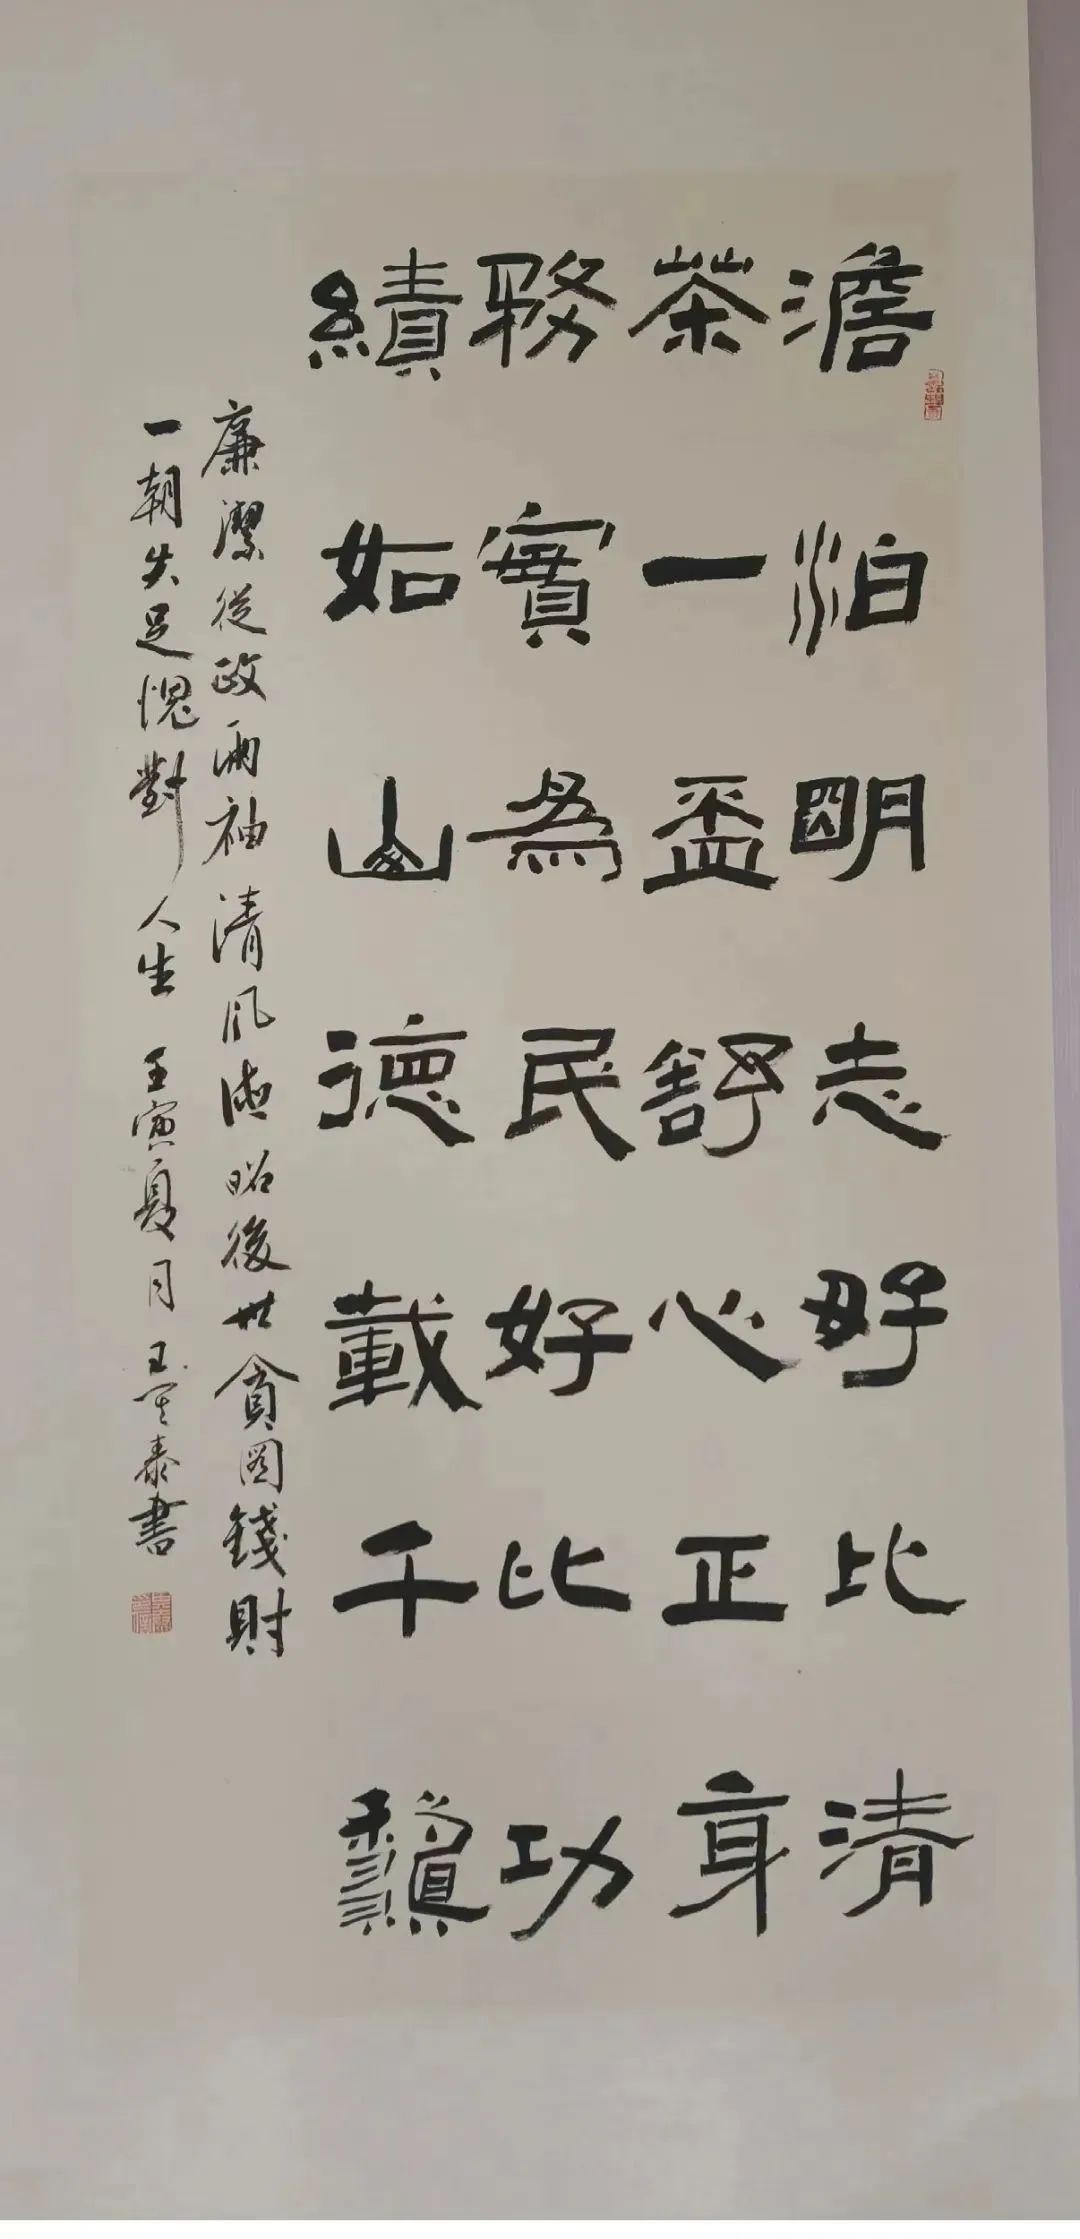 澹泊明志好比清
茶一盃舒心正身
務實為民好比功
績如山德載千
廉潔從政兩袖清風德昭後世貪圖錢財
一朝失足愧對人生 壬寅夏月王泰書